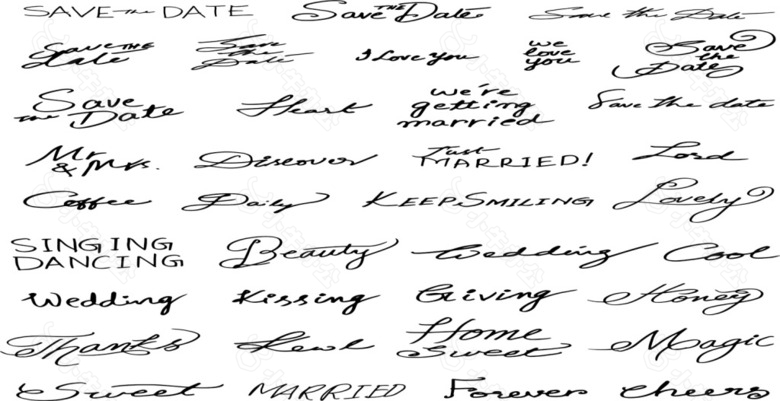 SAVE the DATE
Save THE Date
Save the Date
Save THE Date
Save the Date
I Love you
we love you
Save the Date
Save the Date
Heart
we're getting married
Save the date
Mr. & Mrs.
Discover
Just MARRIED!
Lord
Coffee
Daily
KEEP SMILING
Lovely
SINGING DANCING
Beauty
Wedding
Cool
Wedding
Kissing
Giving
Honey
Thanks
Home Sweet
Magic
Sweet
MARRIED
Forever
Cheers